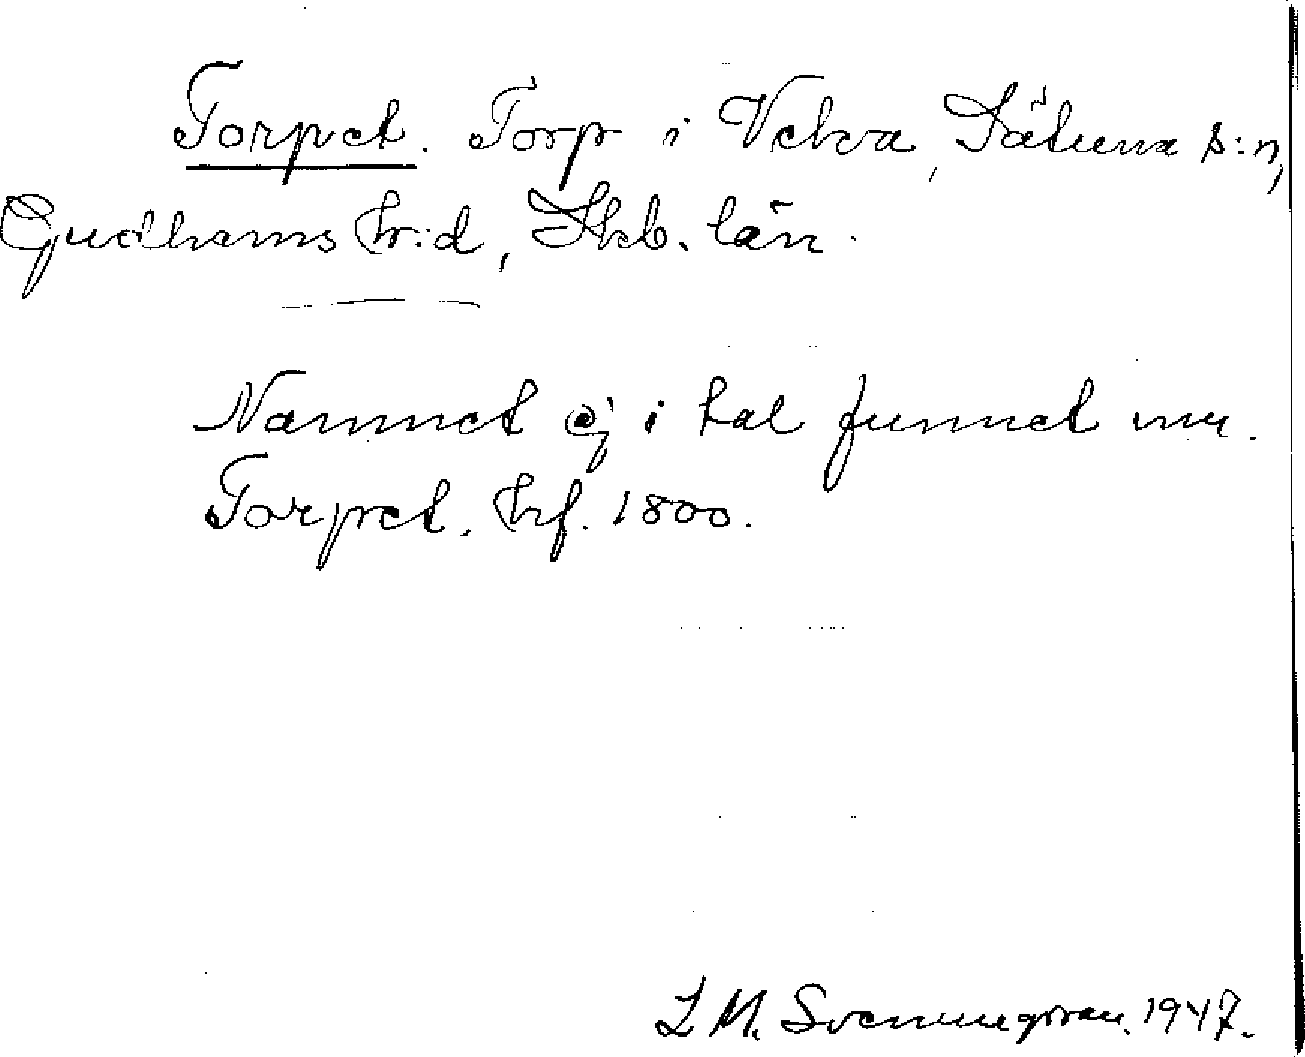 Torpet. Torp i Vekva, Sätuna s:n,
Gudhems hr:d, Skb. län.
Namnet ej i tal funnet nu.
Torpet. hrf. 1800.
L M. Svenungsson. 1947.